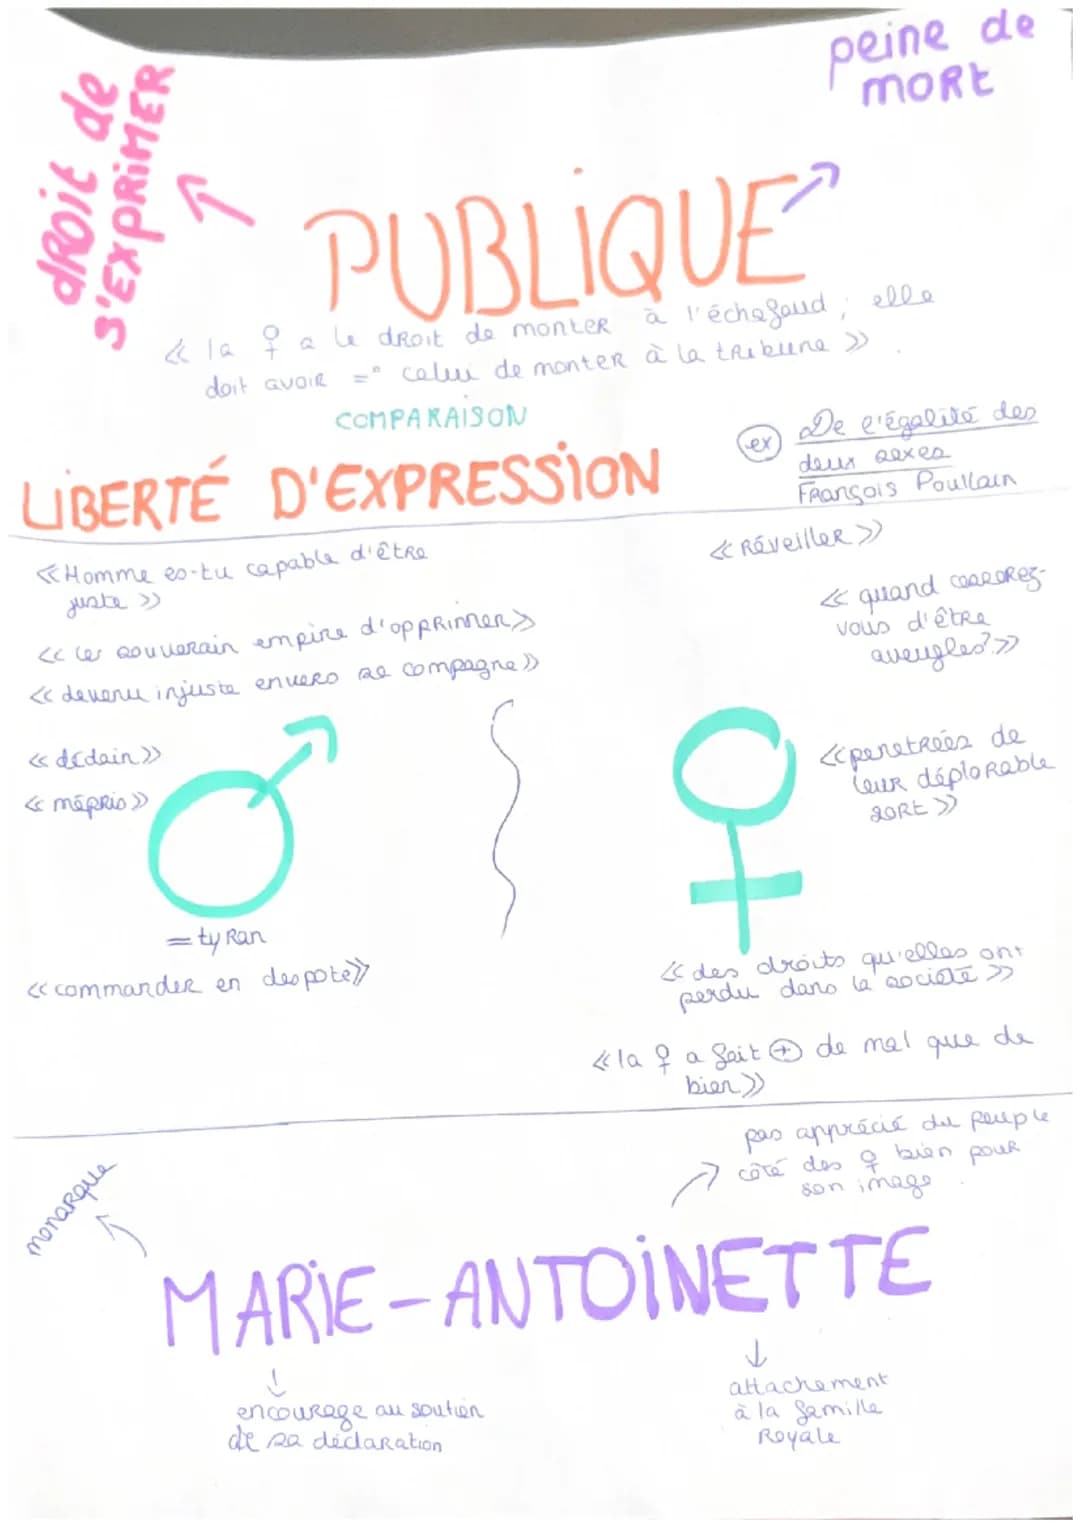 peine de
mort
droit de
s'exprimer
PUBLIQUE
<< la ♀ a le droit de monter à l'échafaud ; elle
doit avoir =° celui de monter à la tribune >> .
COMPARAISON
LIBERTÉ D'EXPRESSION
ex De l'égalité des
deux sexes
François Poullain
<< Homme es-tu capable d'être
juste >>
<< souverain empire d'opprimmer >>
<< devenu injuste envers sa compagne >>
<< dédain >>
<< mépris >>
= tyran
<< commander en despote >>
<< Réveiller >>
<< quand cesserez-
vous d'être
aveugles? >>
<< penetrées de
leur déplorable
sort >>
<< des droits qu'elles ont
perdu dans la société >>
<< la ♀ a fait ⊕ de mal que de
bien >>
pas apprécié du peuple
côté des ♀ bien pour
son image .
monarque
MARIE-ANTOINETTE
encourage au soutien
de sa déclaration
attachement
à la famille
Royale